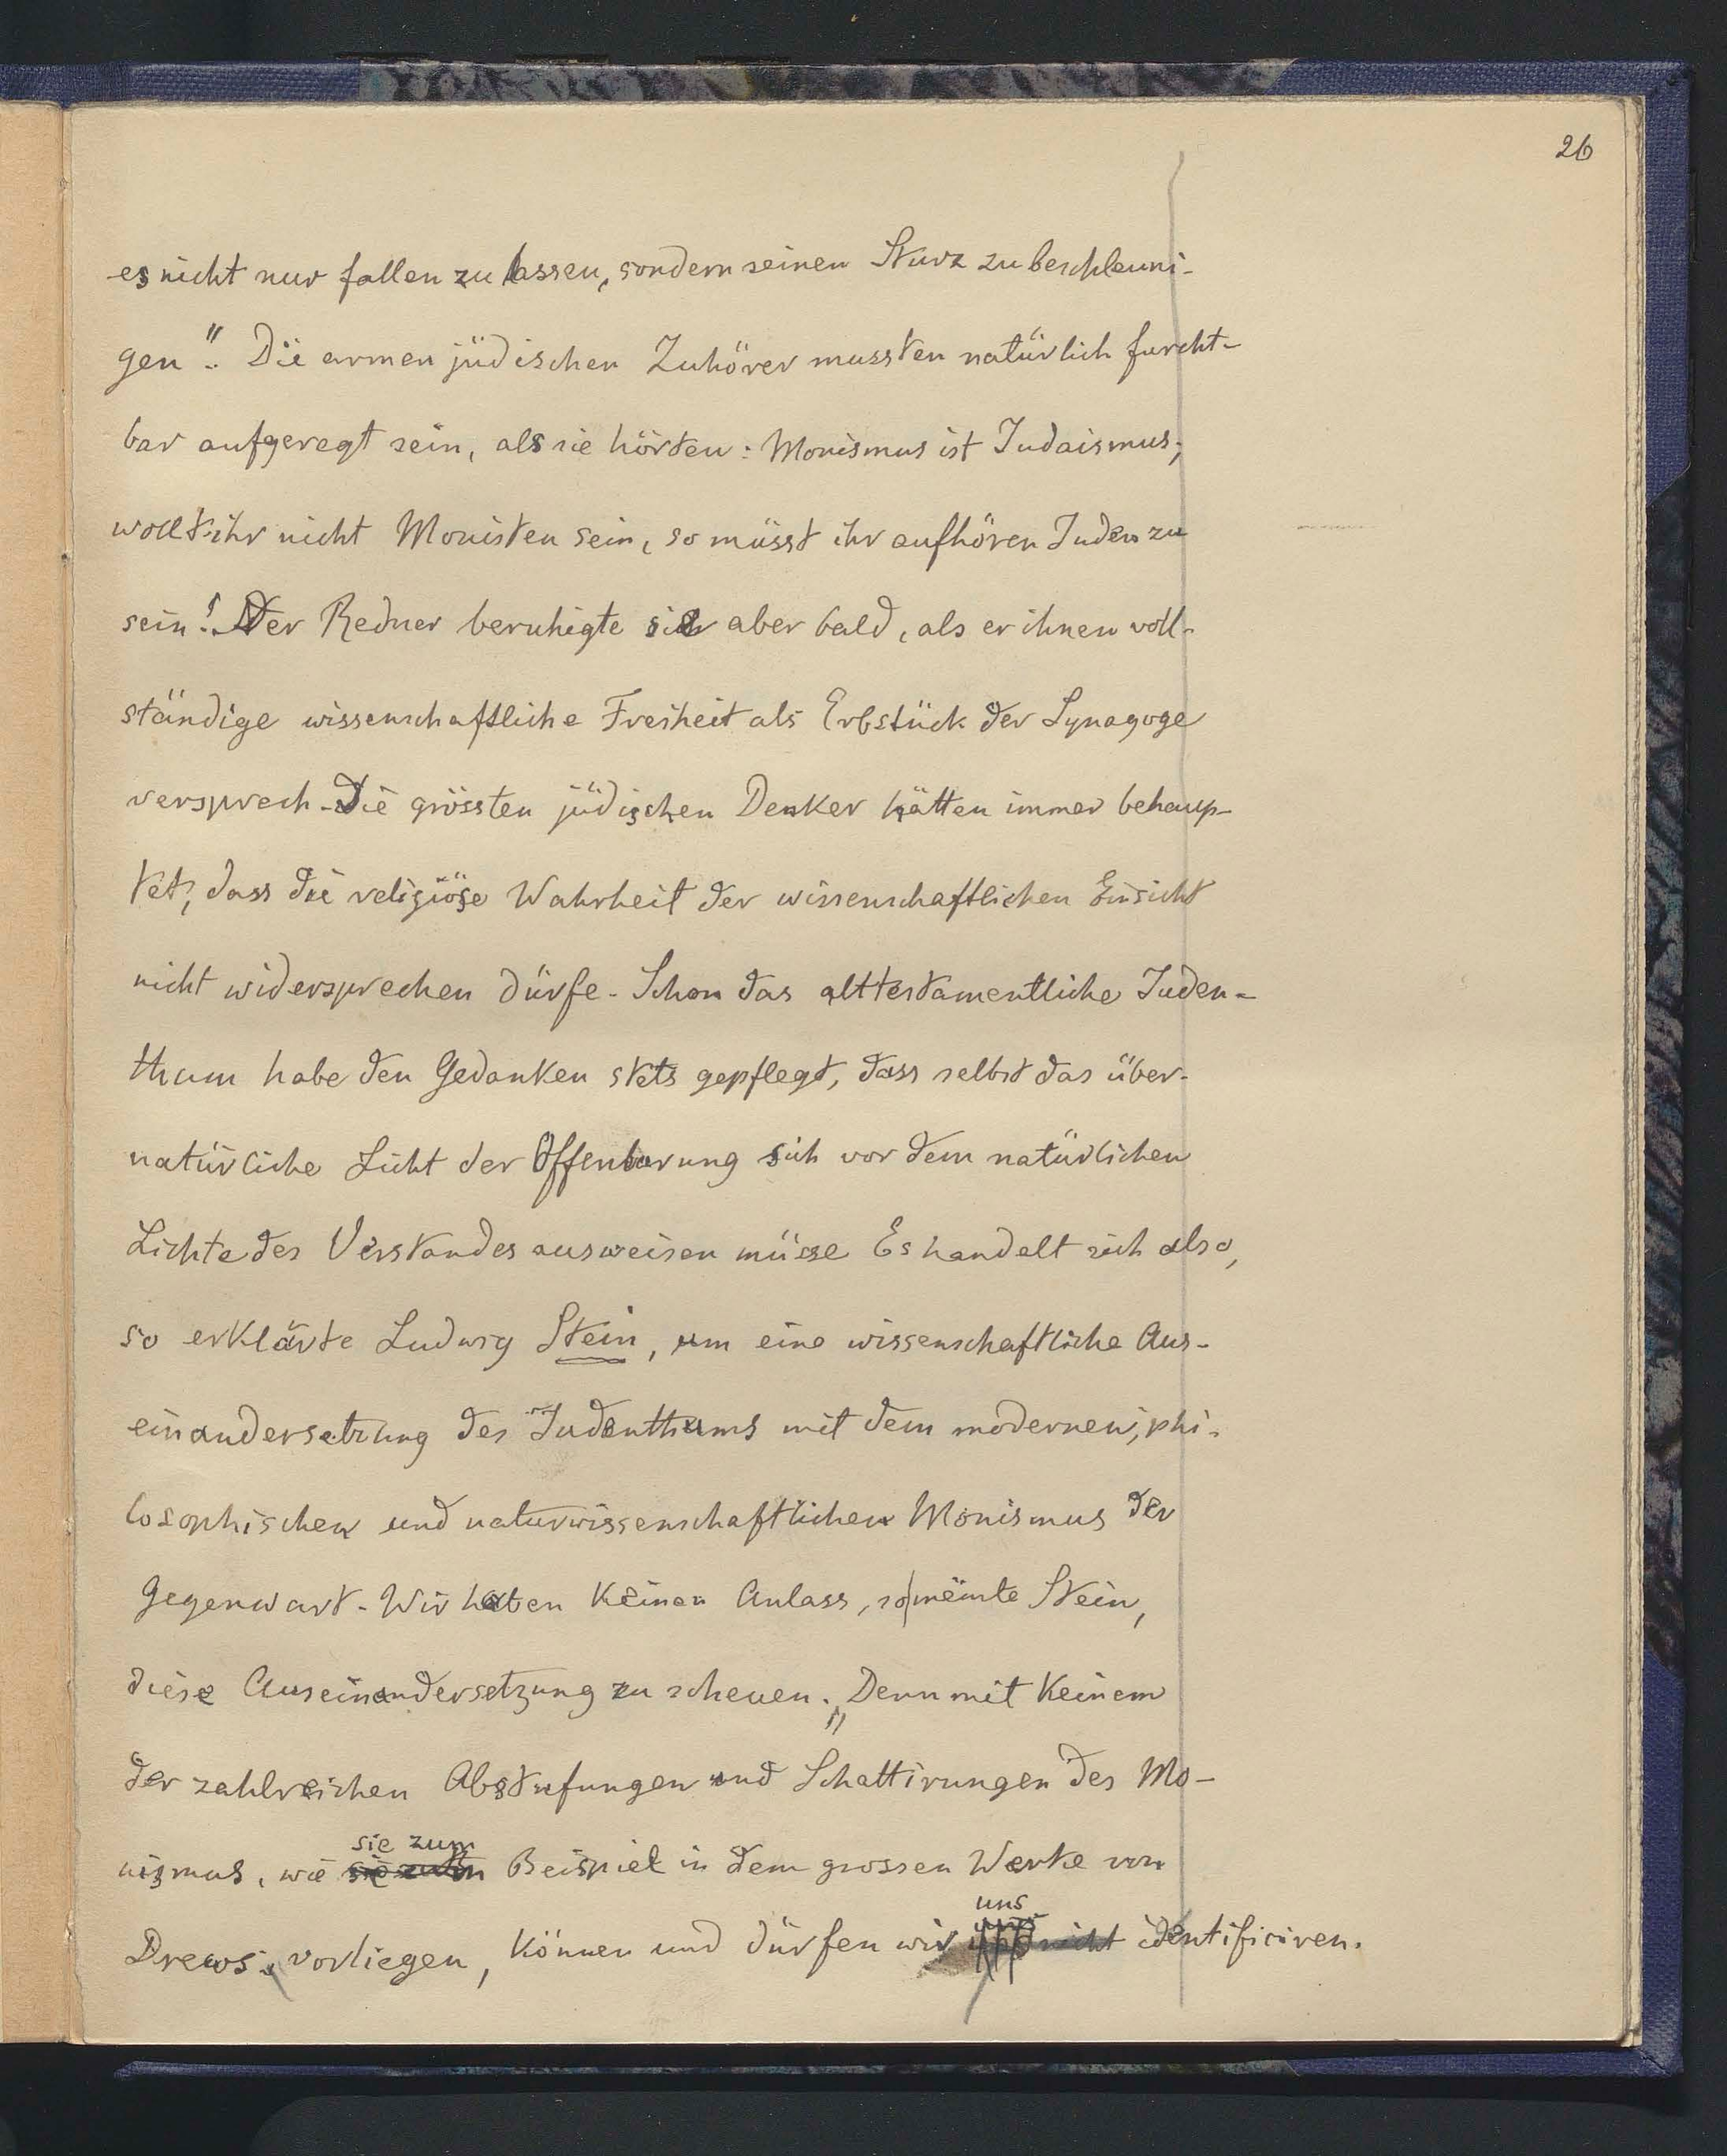 26
es nicht nur fallen zu lassen, sondern seinen Sturz zu beschleuni-
gen". Die armen jüdischen Zuhörer mussten natürlich furcht-
bar aufgeregt sein, als sie hörten: Monismus ist Judaismus;
wollt ihr nicht Monisten sein, so müsst ihr aufhören Juden zu
sein! Der Redner beruhigte sie aber bald, als er ihnen voll-
ständige wissenschaftliche Freiheit als Erbstück der Synagoge
versprach. Die grössten jüdischen Denker hätten immer behaup-
tet, dass die religiöse Wahrheit der wissenschaftlichen Einsicht
nicht widersprechen dürfe. Schon das alttestamentliche Juden-
thum habe den Gedanken stets gepflegt, dass selbst das über-
natürliche Licht der Offenbarung sich vor dem natürlichen
Lichte des Verstandes ausweisen müsse Es handelt sich also,
so erklärte Ludwig Stein, um eine wissenschaftliche Aus-
einandersetzung des Judenthums mit dem modernen, phi-
losophischen und naturwissenschaftlichen Monismus der
Gegenwart. Wir haben keinen Anlass, so meinte Stein,
diese Auseinandersetzung zu scheuen. „Denn mit keinem
der zahlreichen Abstufungen und Schattirungen des Mo-
nismus, wie sie zum Beispiel in dem grossen Werke von
Drews vorliegen, können und dürfen wir uns nicht identificiren.